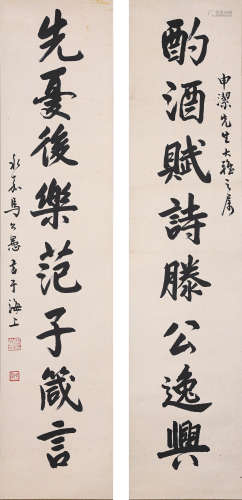 申潔先生大雅之属
酌酒賦詩滕公逸興
先憂後樂范子箴言
永嘉馬公愚書于海上